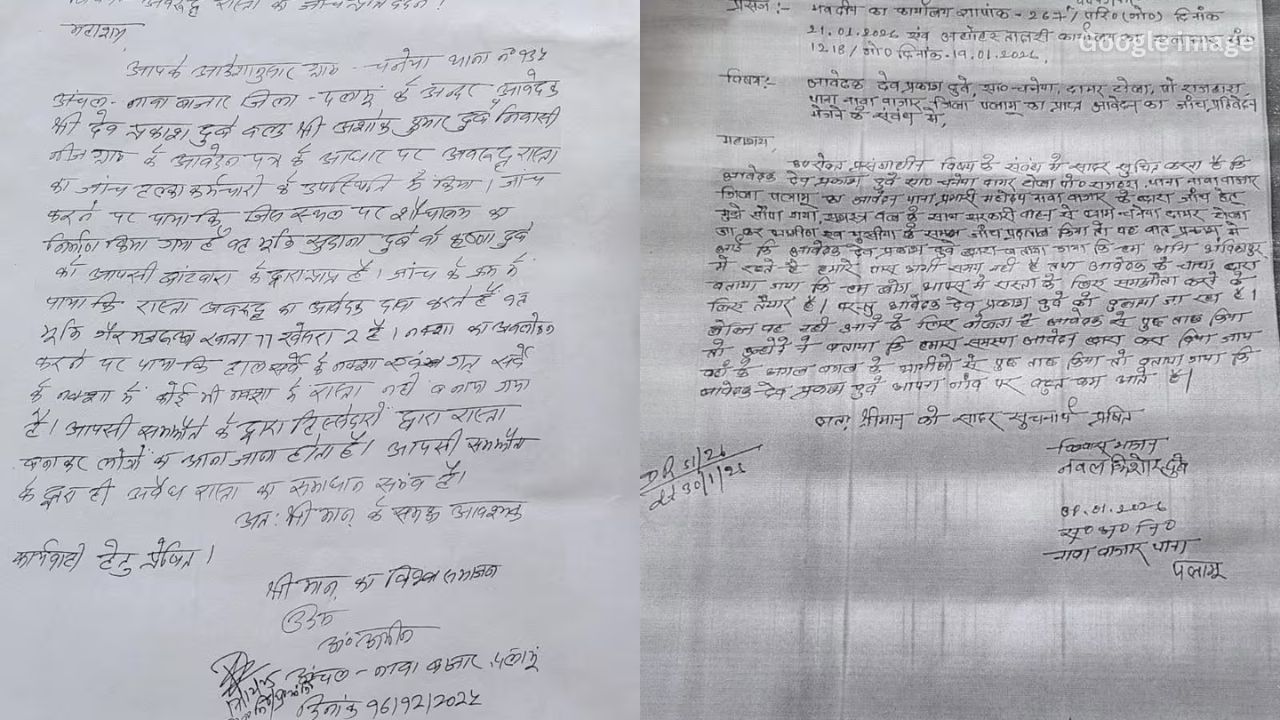 महाशय,
आपके आदेशानुसार ग्राम - चनेया थाना नं० १३५
अंचल - नावा बाजार जिला - पलामू के अन्दर आवेदक
श्री देव प्रकाश दुबे वल्द श्री अशोक कुमार दुबे निवासी
नीज ग्राम के आवेदन पत्र के आधार पर अवरुद्ध रास्ता
का जांच हल्का कर्मचारी के उपस्थिति में किया। जांच
करने पर पाया कि जिस स्थल पर शौचालय का
निर्माण किया गया है वह भूमि सुदामा दुबे वो कृष्णा दुबे
को आपसी बांटवारा के द्वारा प्राप्त है। जांच के क्रम में
पाया कि रास्ता अवरुद्ध का आवेदक दावा करते हैं वह
भूमि गैर मजरूआ खाता 77 खेसरा 2 है। नक्शा का अवलोकन
करने पर पाया कि हाल सर्वे के नक्शा एवं गत सर्वे
के नक्शा में कोई भी नक्शा में रास्ता नहीं बनाया गया
है। आपसी समझौते के द्वारा हिस्सेदारों द्वारा रास्ता
बनाकर लोगों का आना जाना होता है। आपसी समझौता
के द्वारा ही अवैध रास्ता का समाधान संभव है।
अतः श्री मान् के समक्ष आवश्यक
कार्यवाही हेतु प्रेषित।
श्री मान् का विश्वासभाजन
अं० अमीन
अंचल - नावा बाजार, पलामू
दिनांक 16/12/2025
प्रसंग :- भवदीय का कार्यालय ज्ञापांक - 267/ परि० (गो०) दिनांक
21.01.2026 एवं
1218/ गो० दिनांक - 19.01.2026.
Google image
विषय :- आवेदक देव प्रकाश दुबे, सा० चनेया, दामर टोला, पो राजहारा
थाना नावा बाजार, जिला पलामू का प्राप्त आवेदन का जाँच प्रतिवेदन
भेजने के संबंध में,
महाशय,
उपरोक्त प्रसंगाधीन विषय के संबंध में सादर सूचित करना है कि
आवेदक देव प्रकाश दुबे सा० चनेया दामर टोला पो० राजहरा, थाना नावा बाजार
जिला पलामू का आवेदन थाना प्रभारी महोदय नावा बाजार के द्वारा जाँच हेतु
मुझे सौंपा गया, सशस्त्र बल के साथ सरकारी वाहन से ग्राम चनेया दामर टोला
जा कर ग्रामीण एवं मुखिया के समक्ष जाँच पड़ताल किया तो यह बात प्रकाश में
आई कि आवेदक देव प्रकाश दुबे द्वारा बताया गया कि हम अभी अम्बिकापुर
में रहते हैं हमारे पास अभी समय नहीं है तथा आवेदक के चाचा द्वारा
बताया गया कि हम लोग आपस में रास्ता के लिए समझौता करने के
लिए तैयार हैं। परन्तु आवेदक देव प्रकाश दुबे को बुलाया जा रहा है।
लेकिन वह नहीं आने के लिए बोलता है आवेदक से पुछ ताछ किया
तो उन्होंने ने बताया कि हमारा समस्या आवेदन द्वारा करा दिया जाय
वहाँ के अगल बगल के ग्रामीणों से पुछ ताछ किया तो बताया गया कि
आवेदक देव प्रकाश दुबे अपना गाँव पर बहुत कम आते हैं।
अतः श्रीमान को सादर सुचनार्थ प्रेषित
DR 51/26
dt 30/1/26
विश्वास भाजन
नवल किशोर दुबे
01.2026
स० अ० नि०
नावा बाजार थाना
पलामू